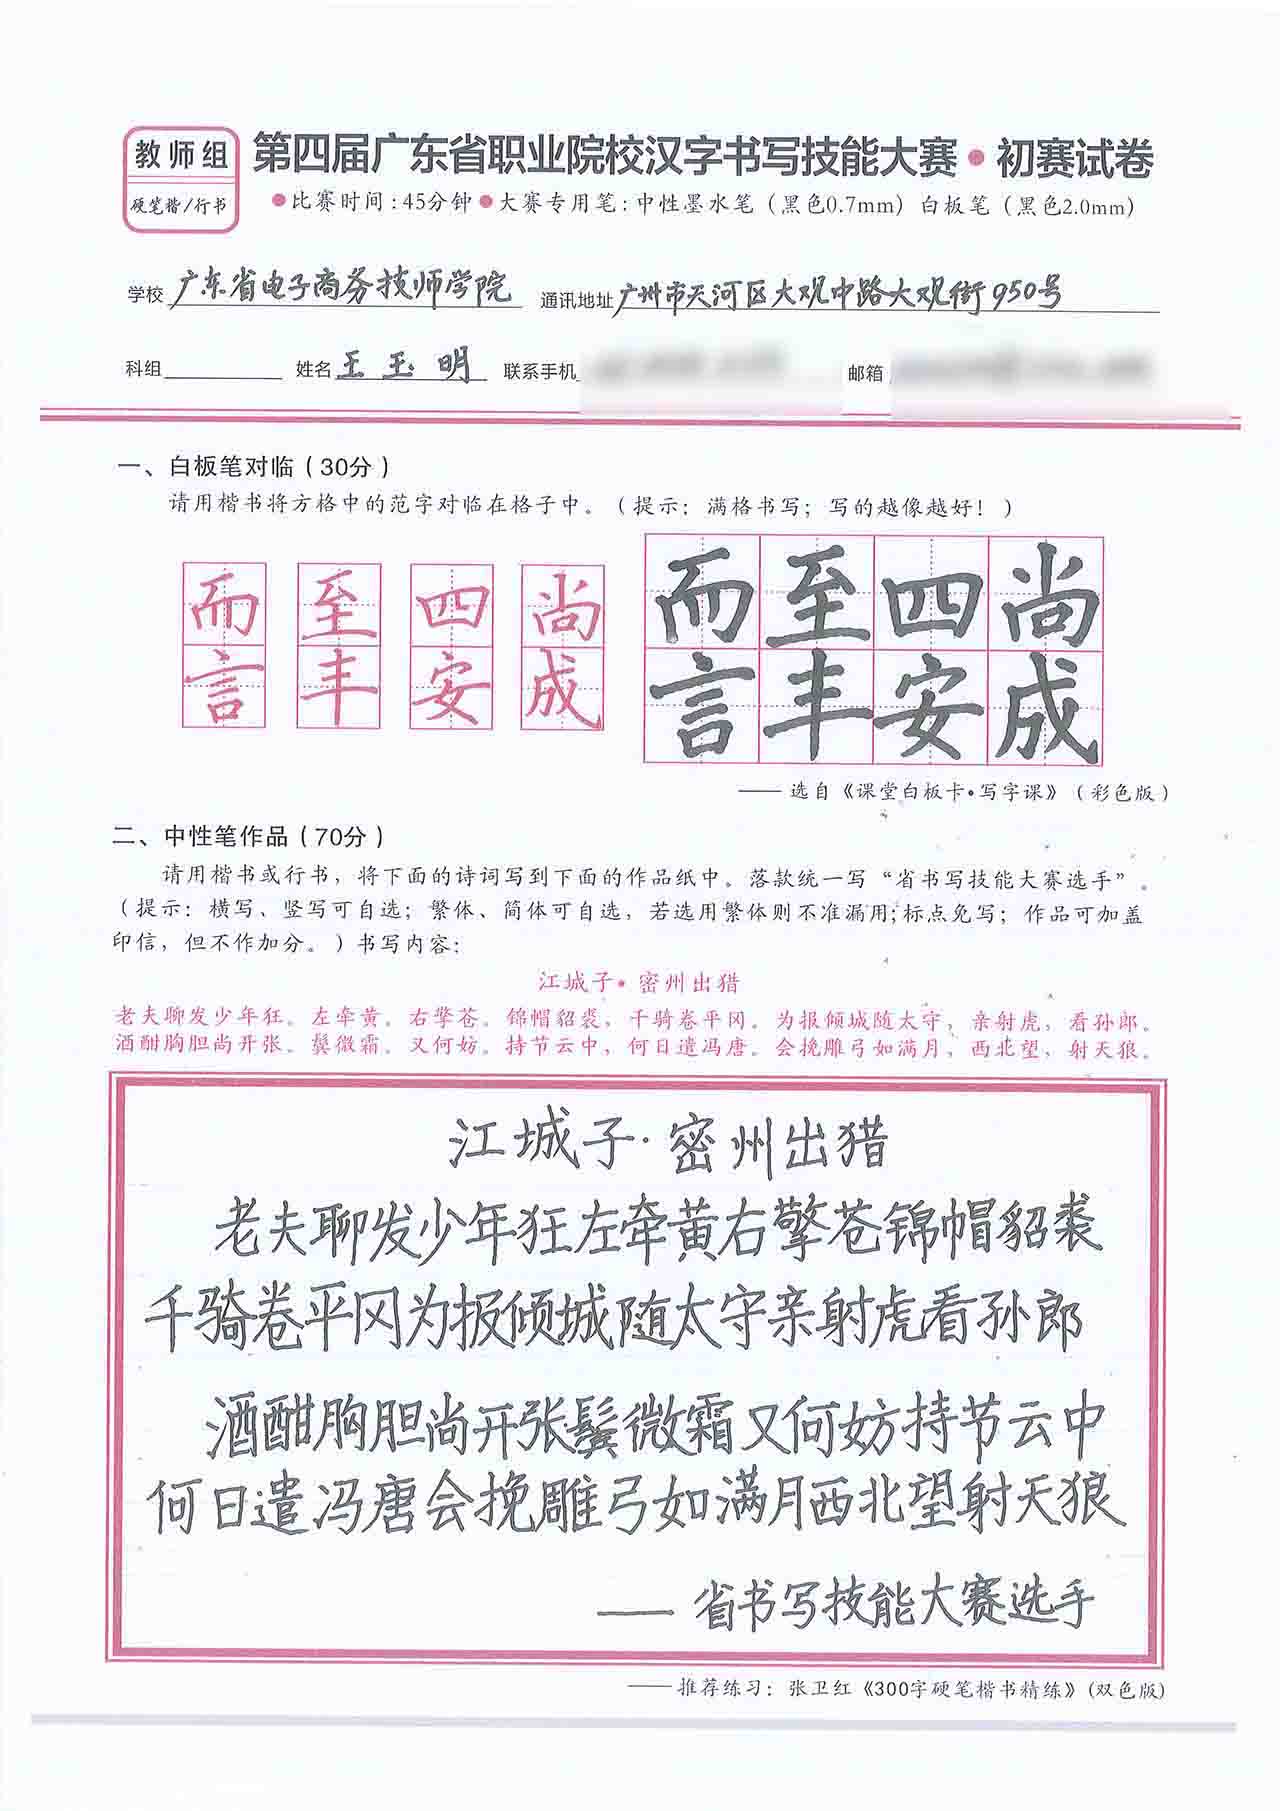 教师组
硬笔楷/行书
第四届广东省职业院校汉字书写技能大赛•初赛试卷
•比赛时间:45分钟•大赛专用笔:中性墨水笔（黑色0.7mm）白板笔（黑色2.0mm）
学校 广东省电子商务技师学院 通讯地址 广州市天河区大观中路大观街950号
科组 姓名 王玉明 联系手机 邮箱
一、白板笔对临（30分）
请用楷书将方格中的范字对临在格子中。（提示：满格书写；写的越像越好！）
而 至 四 尚 而至四尚
言 丰 安 成 言丰安成
——选自《课堂白板卡•写字课》（彩色版）
二、中性笔作品（70分）
请用楷书或行书，将下面的诗词写到下面的作品纸中。落款统一写“省书写技能大赛选手”。
（提示：横写、竖写可自选；繁体、简体可自选，若选用繁体则不准漏用;标点免写；作品可加盖
印信，但不作加分。）书写内容：
江城子•密州出猎
老夫聊发少年狂。左牵黄。右擎苍。锦帽貂裘，千骑卷平冈。为报倾城随太守，亲射虎，看孙郎。
酒酣胸胆尚开张。鬓微霜。又何妨。持节云中，何日遣冯唐。会挽雕弓如满月，西北望，射天狼。
江城子·密州出猎
老夫聊发少年狂左牵黄右擎苍锦帽貂裘
千骑卷平冈为报倾城随太守亲射虎看孙郎
酒酣胸胆尚开张鬓微霜又何妨持节云中
何日遣冯唐会挽雕弓如满月西北望射天狼
——省书写技能大赛选手
——推荐练习：张卫红《300字硬笔楷书精练》(双色版)